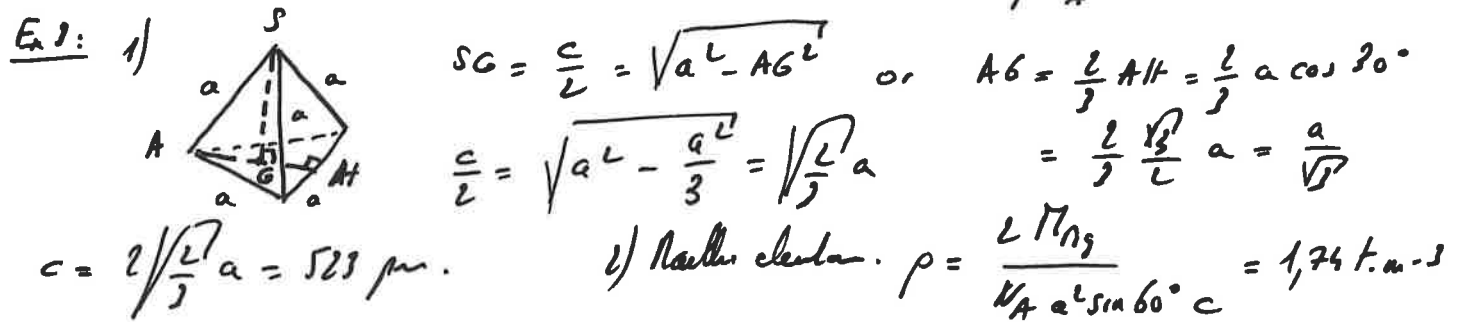 Ex 3: 1) S
a a
SG = c/2 = √(a² - AG²) or AG = 2/3 AH = 2/3 a cos 30°
A a G H
a a
c/2 = √(a² - a²/3) = √(2/3) a
= 2/3 √3/2 a = a/√3
c = 2√(2/3) a = 523 pm. 2) Maille élémentaire. ρ = 2 M_Mg / (N_A a² sin 60° c) = 1,74 t.m-3